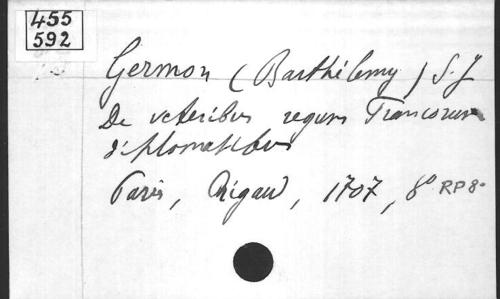 455
592
Germon (Barthélemy) S.J
De veteribus regum Francorum
diplomatibus
Paris, Rigaud, 1707, 8° RP 8-